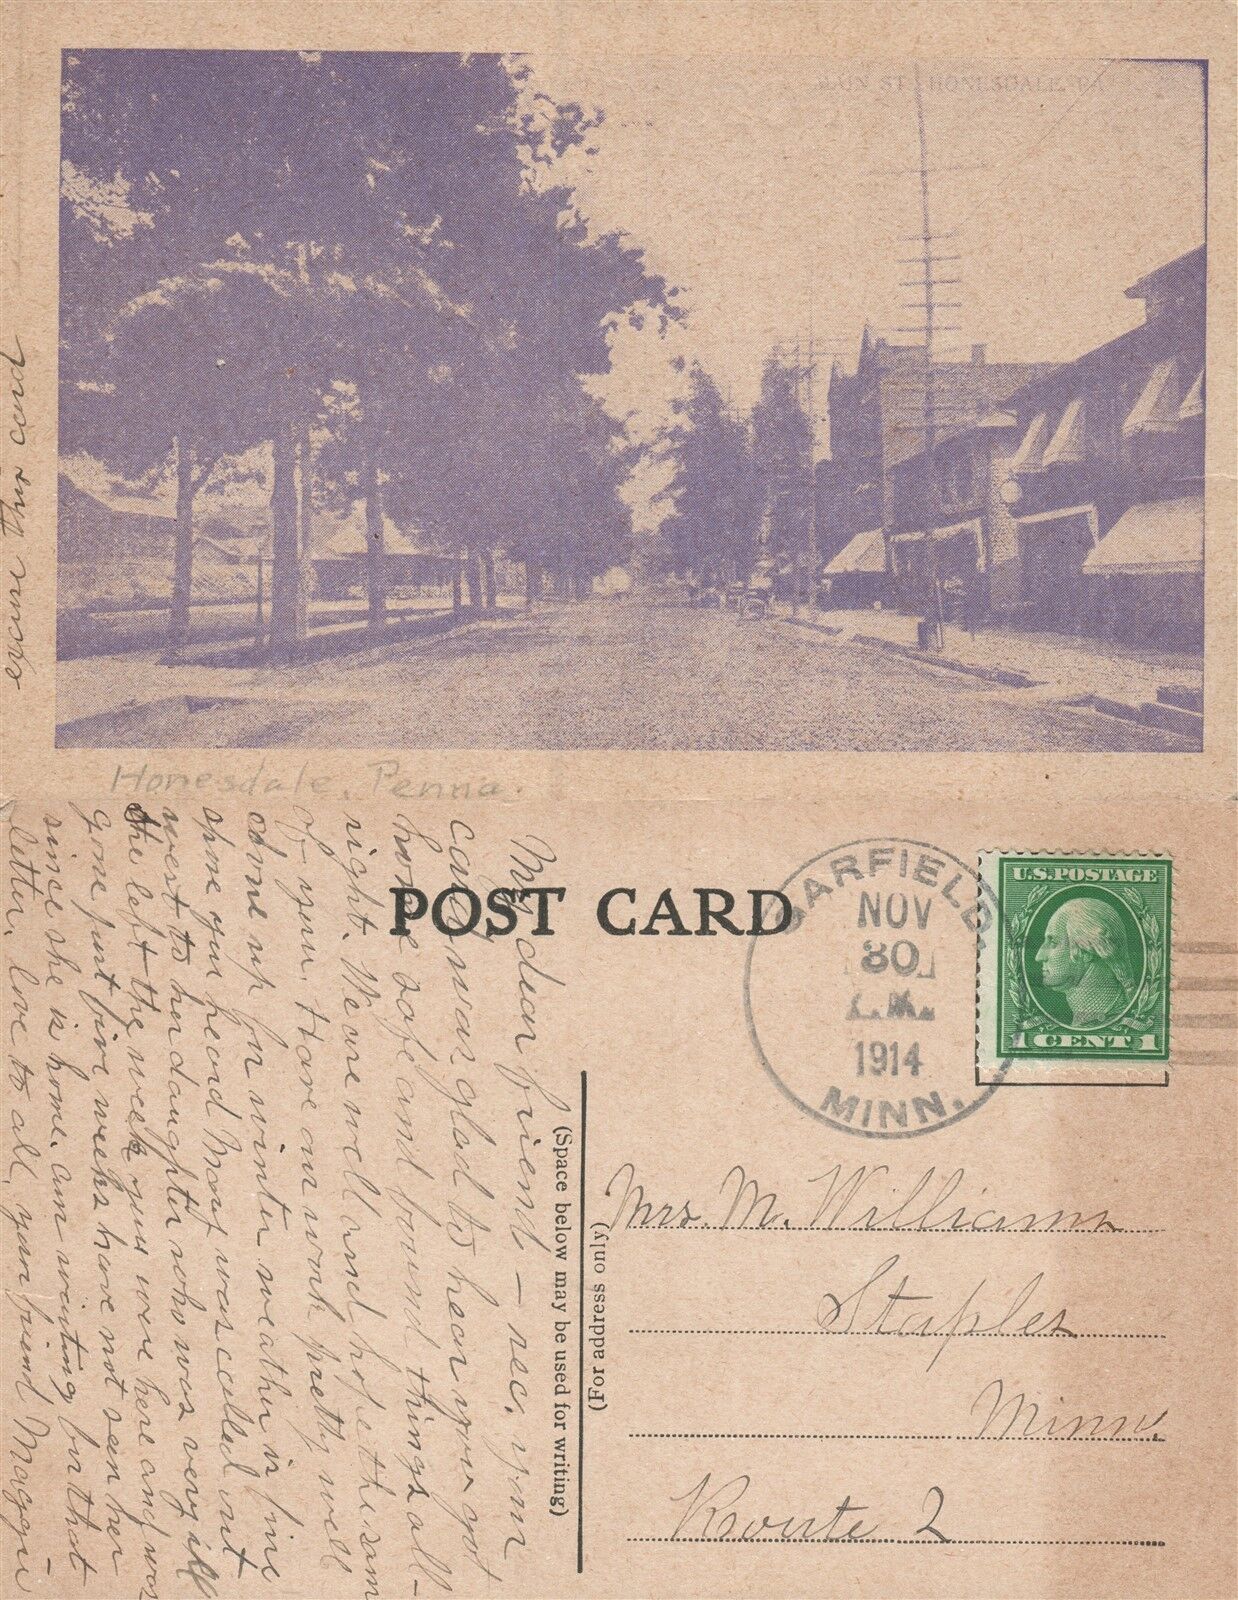 MAIN ST. HONESDALE, PA.
Honesdale, Penna.
POST CARD
GARFIELD.
NOV
30
A.M.
1914
MINN.
U.S. POSTAGE
1 CENT 1
(Space below may be used for writing)
(For address only)
Mrs. M. Williams
Staples
Minn.
Route 2
My dear friend, – rec. your
card, was glad to hear you got
home safe and found things all
right. We are well and hope the same
of you. Have our work pretty well
done up for winter. weather is fine
spose you heard Mary was called out
west to her daughter who was very ill
she left the week you were here and was
gone just five weeks have not seen her
since she is home. am writing but that
letter. love to all, your friend Maggie